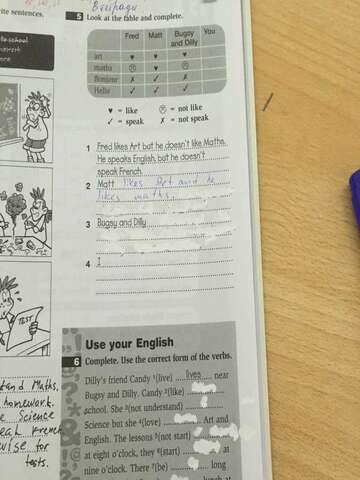 ite sentences.
5 Look at the table and complete.
Fred Matt Bugsy and Dilly You
art ♥ ♥ ♥
maths ☹ ♥ ☹
Bonjour ✗ ✓ ✗
Hello ✓ ✓ ✓
♥ = like ☹ = not like
✓ = speak ✗ = not speak
1 Fred likes Art but he doesn't like Maths.
He speaks English, but he doesn't
speak French.
2 Matt likes Art and he
likes maths.
3 Bugsy and Dilly
4 I
TEST
Use your English
6 Complete. Use the correct form of the verbs.
Dilly's friend Candy ¹(live) lives near
Bugsy and Dilly. Candy ²(like)
school. She ³(not understand)
Science but she ⁴(love) Art and
English. The lessons ⁵(not start)
at eight o'clock, they ⁶(start) at
nine o'clock. There ⁷(be) long
tand Maths,
homework.
Science
for
tests.
lunch at